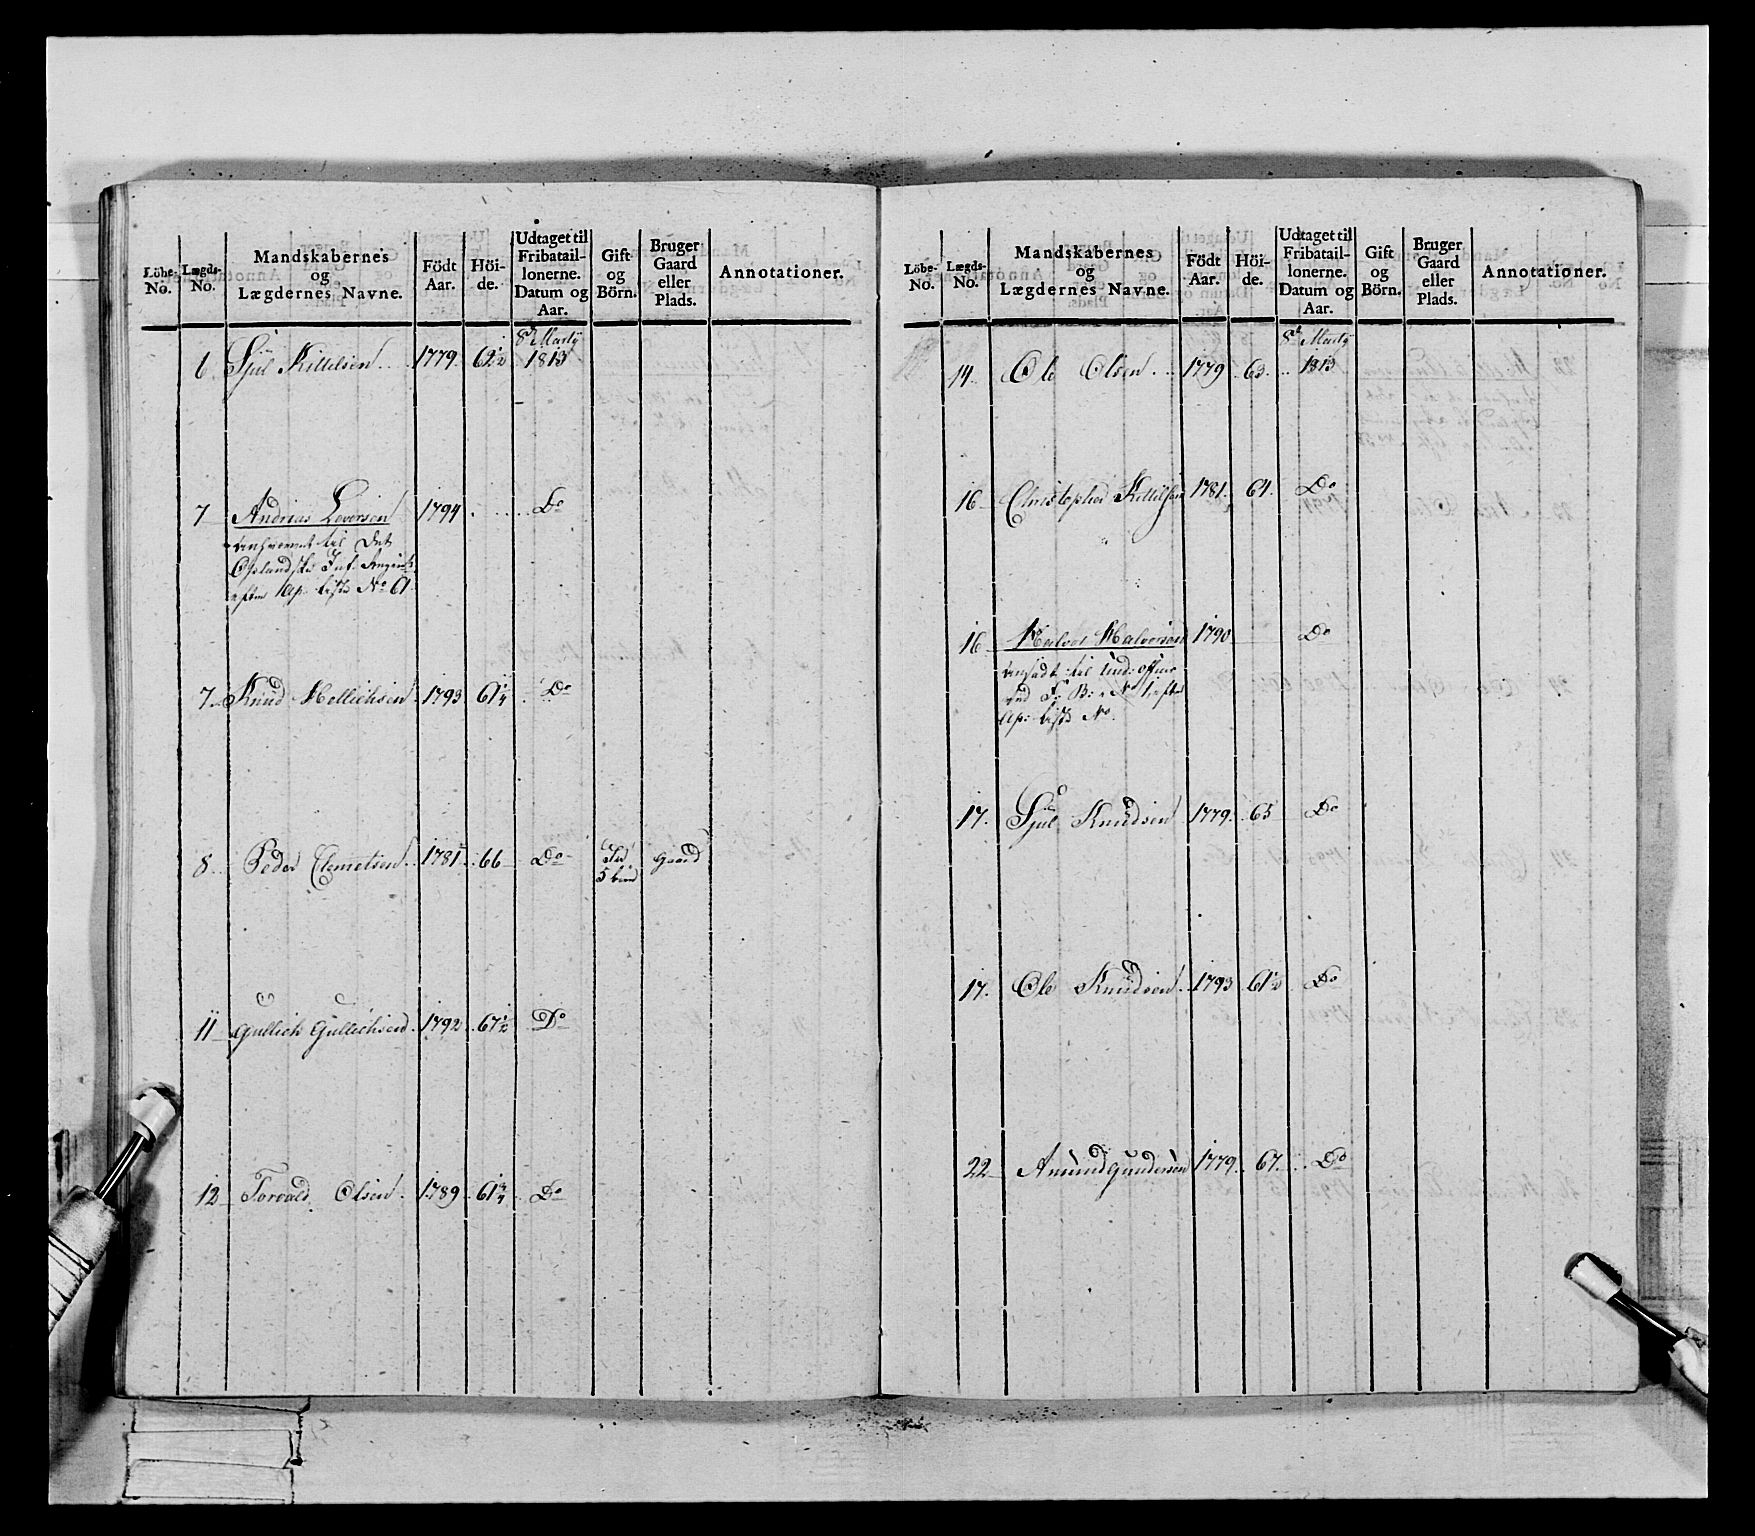 Löbe-No. Lægds-No. Mandskabernes og Lægdernes Navne. Födt Aar. Höi-de. Udtaget til Fribatail-lonerne. Datum og Aar. Gift og Börn. Bruger Gaard eller Plads. Annotationer.
6 Sjul Kittelsen 1779. 62 1/2 8de Marty 1813
7 Andreas Leversen 1794 Do
til det
Oplandske Inf. Regimt
efter Ap: liste No 61
7. Knud Hellichsen 1793 61 1/4 Do
8 Peder Clemetsen 1781 66 Do 5 børn Gaard
11 Gullich Gullichsen 1792 67 1/2 Do
12 Torvald Olsen 1789 61 3/4 Do
Löbe-No. Lægds-No. Mandskabernes og Lægdernes Navne. Födt Aar. Höi-de. Udtaget til Fribatail-lonerne. Datum og Aar. Gift og Börn. Bruger Gaard eller Plads. Annotationer.
14 Ole Olsen 1779 63 8de Marty 1813
16 Christopher Kittilsen 1781. 64. Do
16 Halvor Halvorsen 1790 Do
ansadt til Und: officer
ved F: B: No 1 efter
Ap: liste No.
17. Sjul Knudsen 1779. 65 Do
17. Ole Knudsen 1793 61 1/2 Do
22 Amund Gundersen 1779. 67. Do